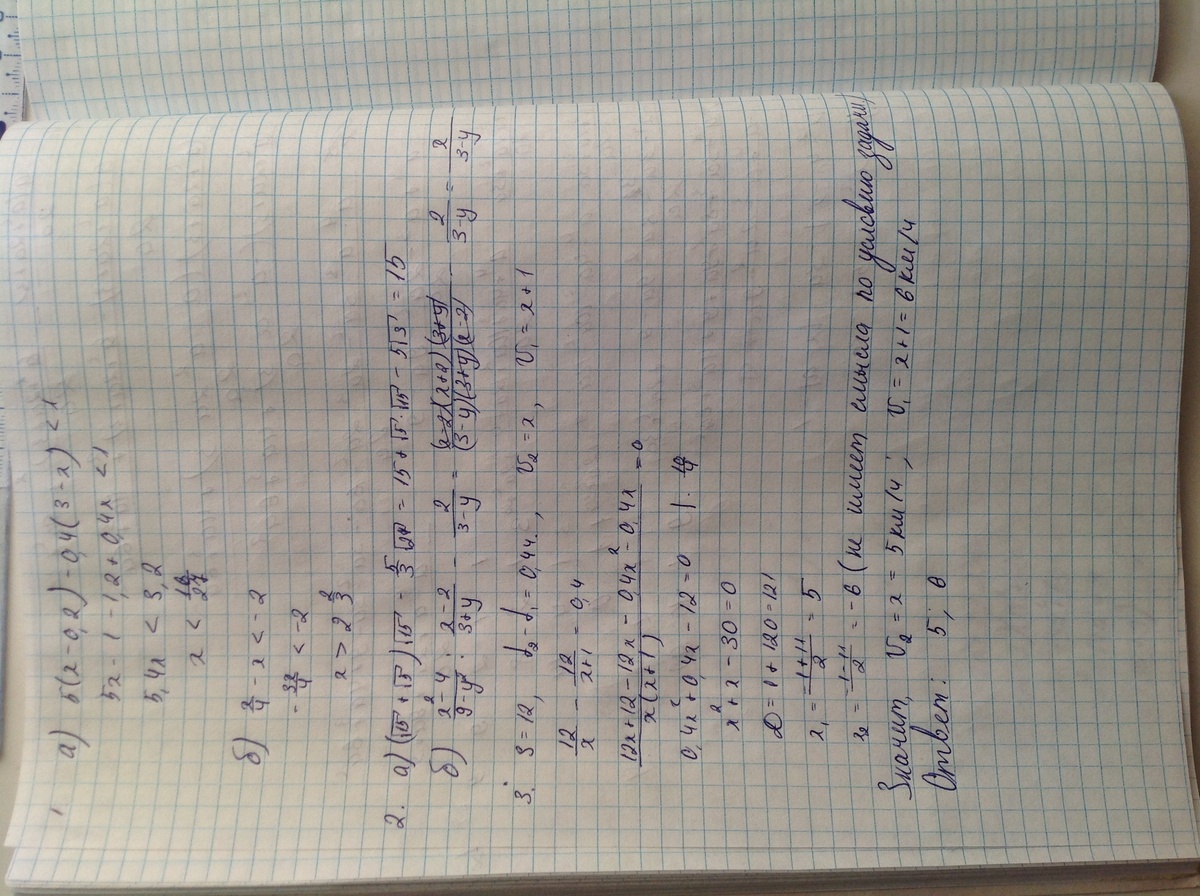 1
а) 5(x-0,2)-0,4(3-x)<1
5x-1-1,2+0,4x<1
5,4x<3,2
x<16/27
б) -x<-2
<-2
x>2 2/3
2. а) (√15+√5)√15 - 5/3 √27 = 15+√5·√15-5√3 = 15
б) (x²-4)/(9-y²) : (x-2)/(3+y) - 2/(3-y) = ((x-2)(x+2)(3+y))/((3-y)(3+y)(x-2)) - 2/(3-y) = x/(3-y)
3. S=12, t₂-t₁=0,4ч., v₂=x, v₁=x+1
12/x - 12/(x+1) = 0,4
(12x+12-12x-0,4x²-0,4x)/(x(x+1)) = 0
0,4x²+0,4x-12=0 | · 10/4
x²+x-30=0
D=1+120=121
x₁ = (1+11)/2 = 5
x₂ = (1-11)/2 = -6 (не имеет смысла по условию задачи)
Значит, v₂=x=5км/ч; v₁=x+1=6км/ч
Ответ: 5; 6